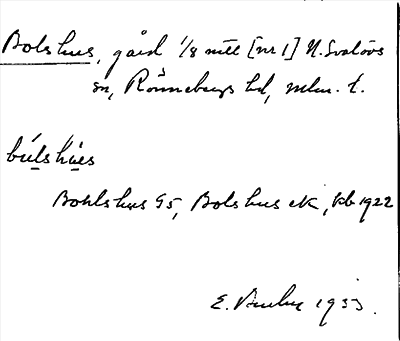 Bolshus, gård 1/8 mtl [nr 1] N. Svalövs
sn, Rönnebergs hd, mlm. l.
bùlshùs
Bohlshus 95, Bolshus ek, kb 1922
E. 1933.